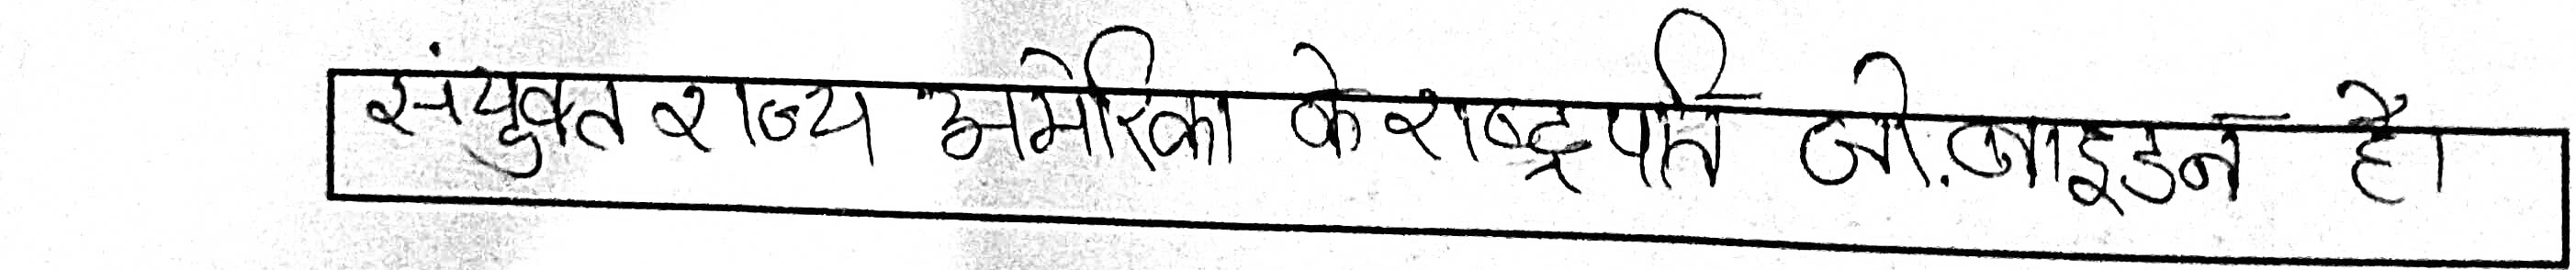 संयुक्त राज्य अमेरिका के राष्ट्रपति जो.जाइडन है।